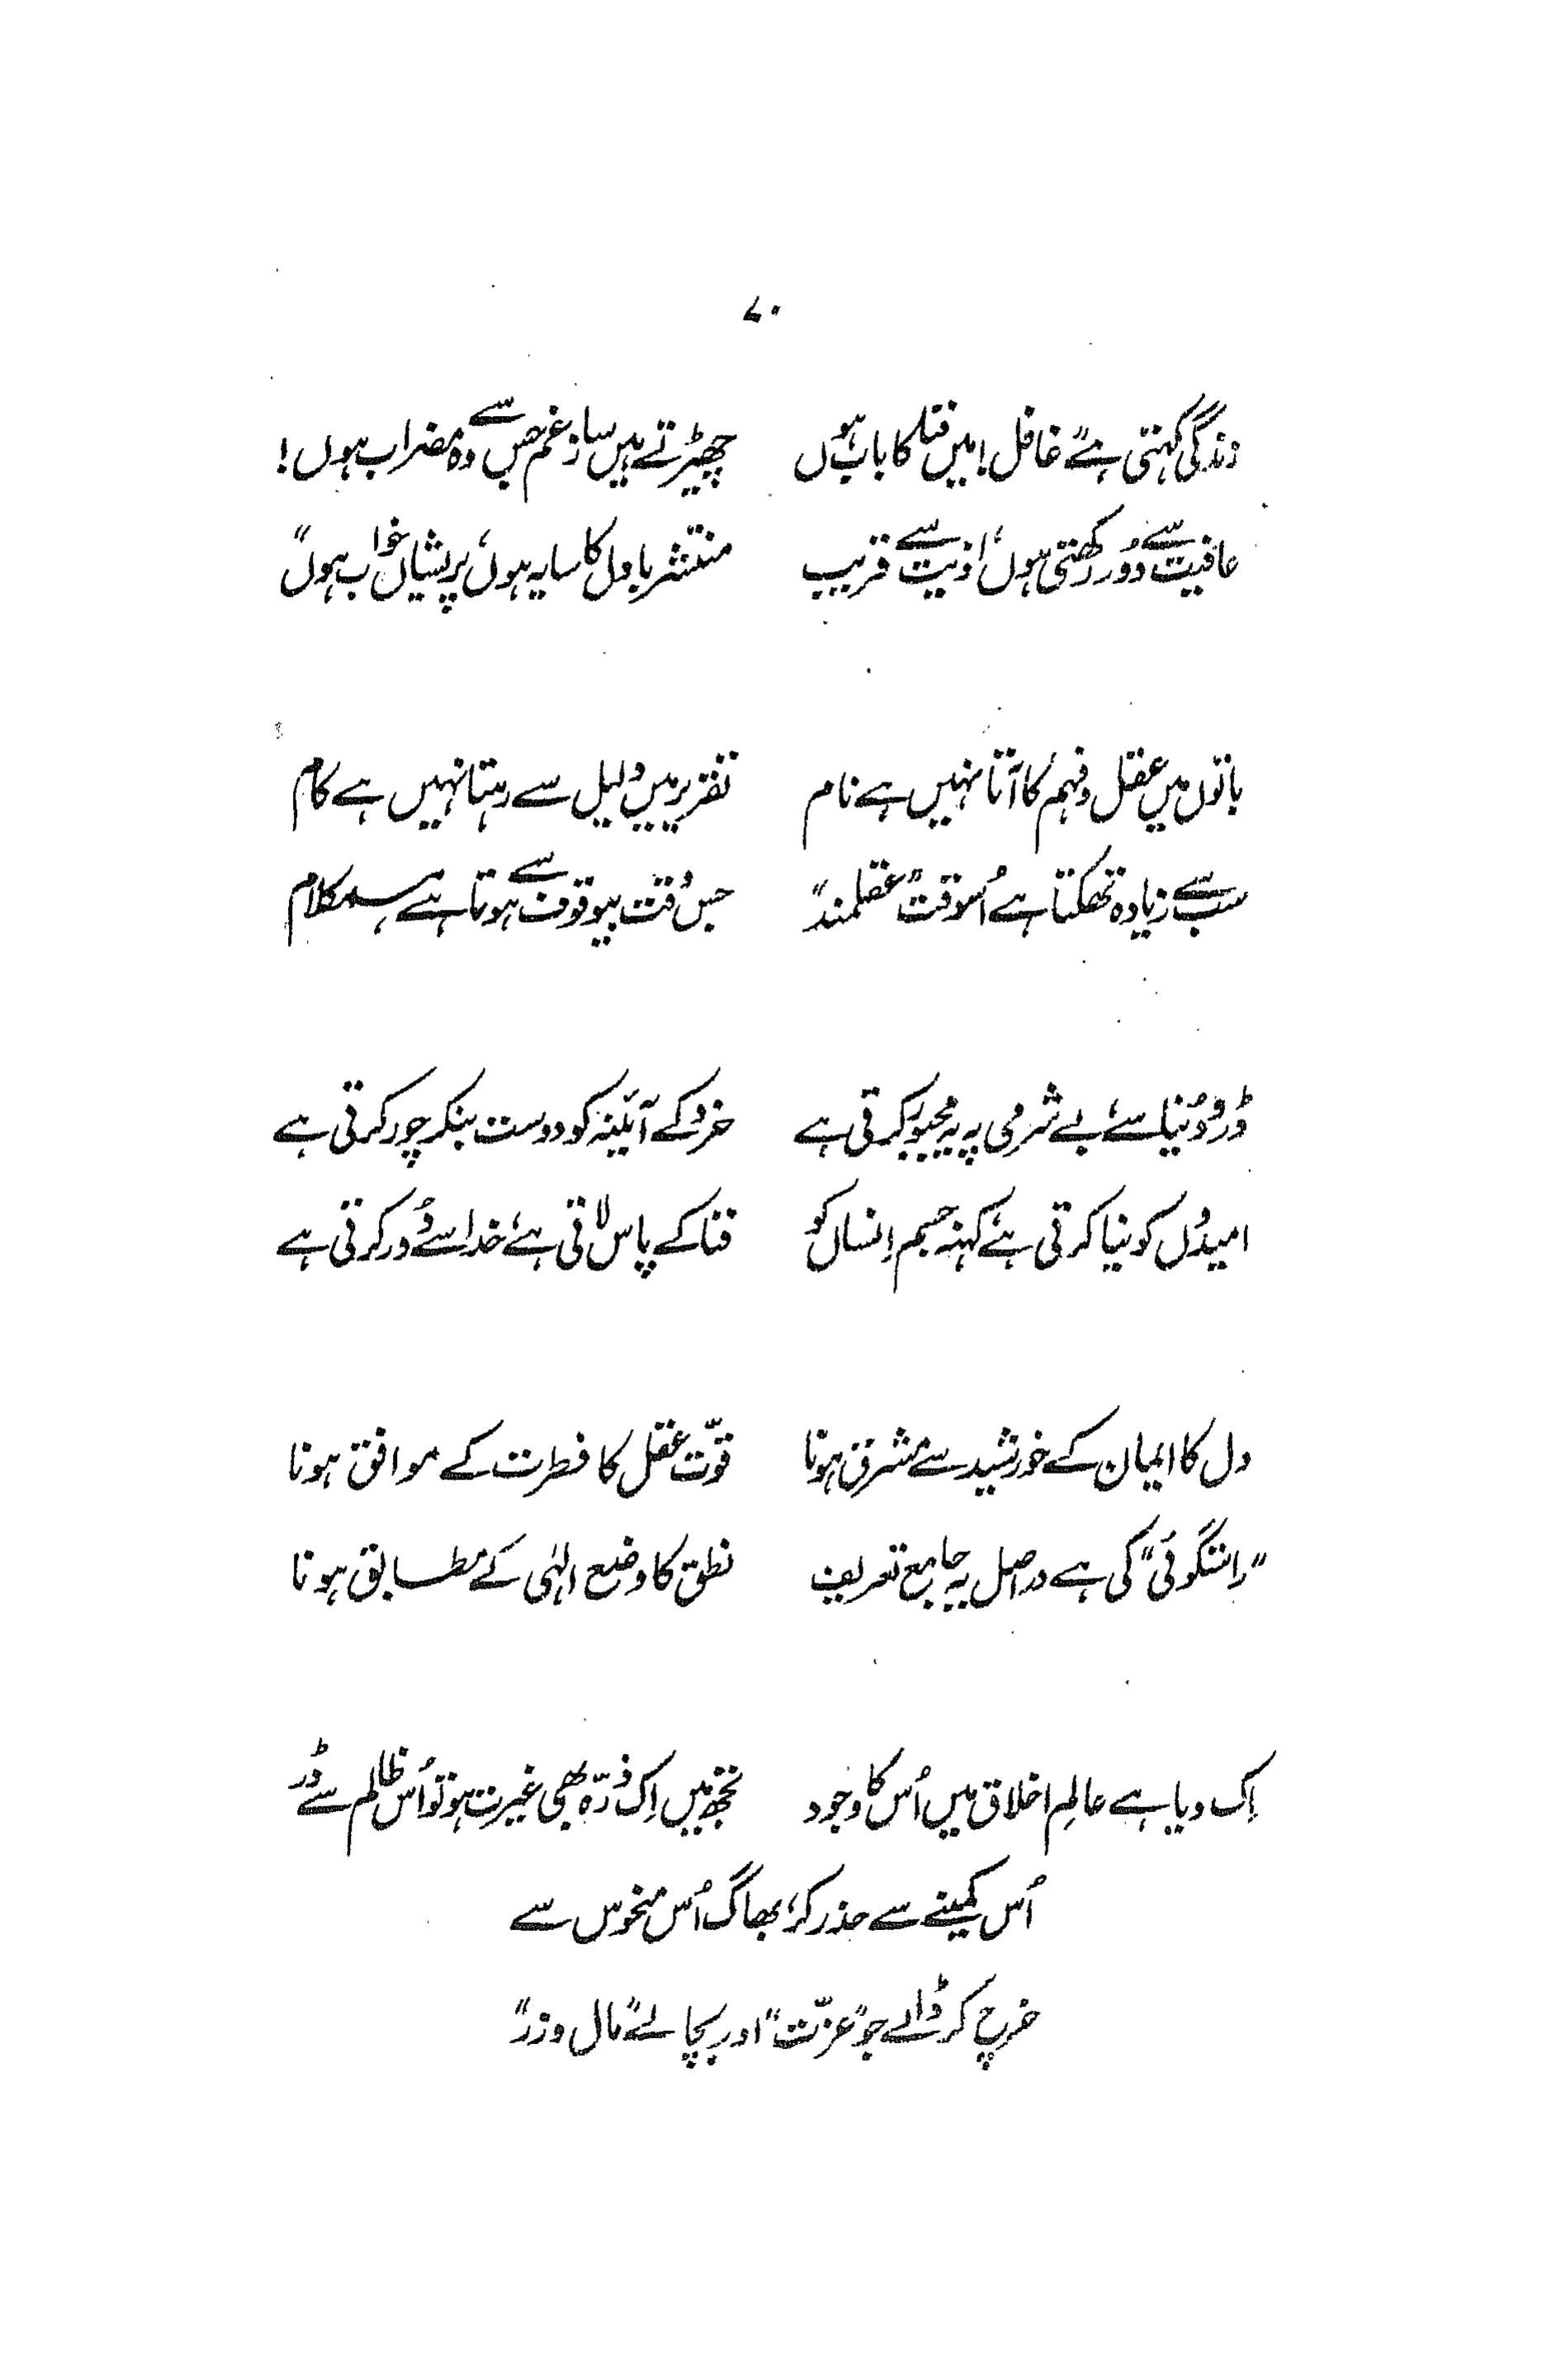 ۷۰
زندگی کہتی ہے "غافل! میں فنا کا باب ہوں چھیڑتے ہیں سازِ غم جس سے وہ مضراب ہوں!
عافیت سے دُور رکھتی ہوں، اذیت سے قریب منتشر بادل کا سایہ ہوں، پریشاں خواب ہوں"
باتوں میں عقل و فہم کا آتا نہیں ہے نام تقریر میں دلیل سے رہتا نہیں ہے کام
سب سے زیادہ تھکتا ہے اُسوقت "عقلمند" جس وقت بیوقوف سے ہوتا ہے ہمکلام
ڈرو دُنیا سے، بے شرمی پہ یہ مجبور کرتی ہے خرد کے آئینہ کو دوست بنکر چور کرتی ہے
امیدوں کو نیا کرتی ہے، کہنہ جسم انساں کو فنا کے پاس لاتی ہے، خدا سے دُور کرتی ہے
دل کا ایمان کے خورشید سے مشرق ہونا قوّت عقل کا فطرت کے موافق ہونا
"راستگوئی" کی ہے دراصل یہ جامع تعریف نطق کا وضع الٰہی کے مطابق ہونا
اِک وبا ہے عالمِ اخلاق میں اُس کا وجود تجھ میں اِک ذرّہ بھی غیرت ہو تو اُس ظالم سے ڈر
اُس کمینے سے حذر کر، بھاگ اُس منحوس سے
خرچ کر ڈالے جو "عزّت" اور بچا لے "مال و زر"